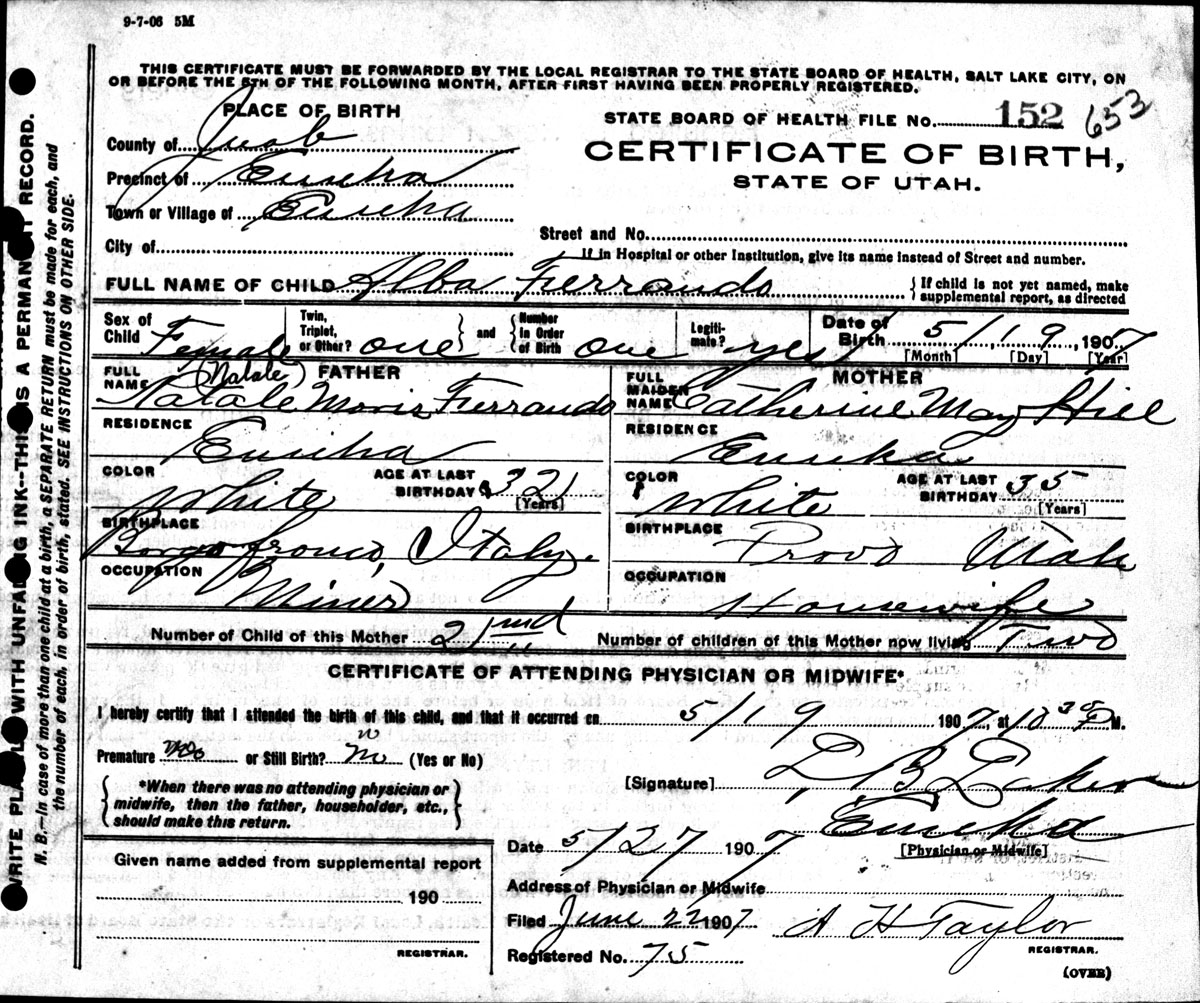 9-7-06 5M
THIS CERTIFICATE MUST BE FORWARDED BY THE LOCAL REGISTRAR TO THE STATE BOARD OF HEALTH, SALT LAKE CITY, ON
OR BEFORE THE 5TH OF THE FOLLOWING MONTH, AFTER FIRST HAVING BEEN PROPERLY REGISTERED.
PLACE OF BIRTH
STATE BOARD OF HEALTH FILE NO. 152 653
County of Juab
CERTIFICATE OF BIRTH,
STATE OF UTAH.
Precinct of Eureka
Town or Village of Eureka
City of
Street and No.
If in Hospital or other Institution, give its name instead of Street and number.
FULL NAME OF CHILD Alba Ferrando
{If child is not yet named, make
supplemental report, as directed
Sex of Child Female
Twin, Triplet, or Other? one } and { Number in Order of Birth one
Legitimate? yes
Date of Birth 5/19, 1907
[Month] [Day] [Year]
FATHER
FULL NAME (Natale) Natale Moris Ferrando
RESIDENCE Eureka
COLOR White
AGE AT LAST BIRTHDAY 32 [Years]
BIRTHPLACE Borgofranco, Italy.
OCCUPATION Miner
MOTHER
FULL MAIDEN NAME Catherine May Hill
RESIDENCE Eureka
COLOR White
AGE AT LAST BIRTHDAY 35 [Years]
BIRTHPLACE Provo Utah
OCCUPATION Housewife
Number of Child of this Mother 2nd
Number of children of this Mother now living Two
CERTIFICATE OF ATTENDING PHYSICIAN OR MIDWIFE*
I hereby certify that I attended the birth of this child, and that it occurred on 5/19 1907, at 10 30 P M.
Premature No or Still Birth? no (Yes or No)
[Signature]
{*When there was no attending physician or
midwife, then the father, householder, etc.,
should make this return.}
Eureka
[Physician or Midwife]
Date 5/27 1907
Given name added from supplemental report
190
REGISTRAR.
Address of Physician or Midwife
Filed June 22 1907
A H Taylor
REGISTRAR.
Registered No. 75
(OVER)
WRITE PLAINLY WITH UNFADING INK--THIS IS A PERMANENT RECORD.
N. B.—In case of more than one child at a birth, a SEPARATE RETURN must be made for each, and
the number of each. in order of birth, stated. SEE INSTRUCTIONS ON OTHER SIDE.